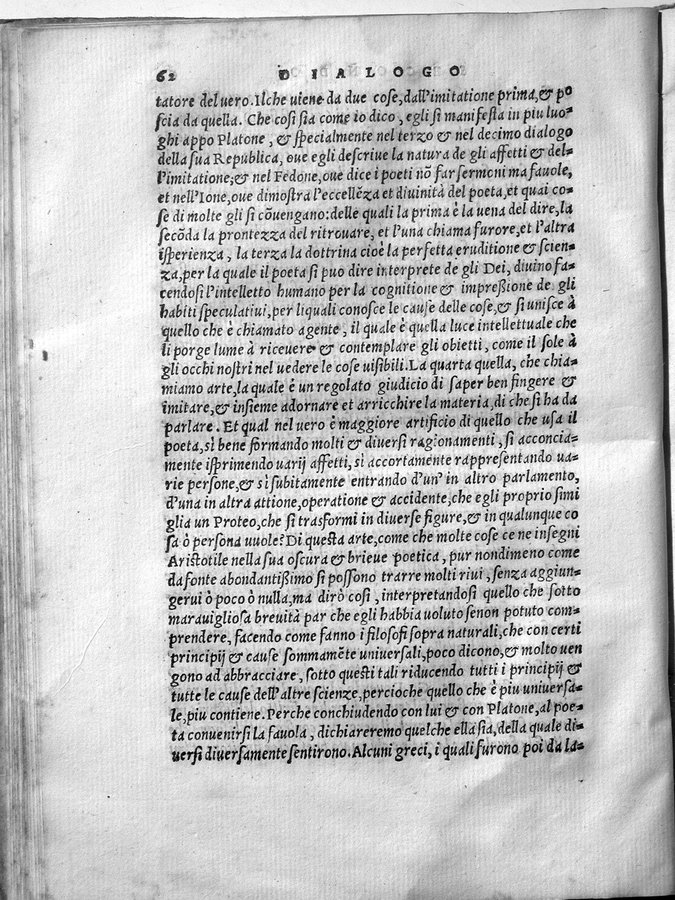 62 DIALOGO
tatore del uero. Ilche uiene da due cose, dall'imitatione prima, & po
scia da quella. Che cosi sia come io dico, egli si manifesta in piu luo-
ghi appo Platone, & specialmente nel terzo & nel decimo dialogo
della sua Republica, oue egli descriue la natura de gli affetti & del-
l'imitatione; & nel Fedone, oue dice i poeti nõ far sermoni ma fauole,
et nell'Ione, oue dimostra l'eccellẽza et diuinità del poeta, et quai co-
se di molte gli si cõuengano: delle quali la prima è la uena del dire, la
secõda la prontezza del ritrouare, et l'una chiama furore, et l'altra
isperienza, la terza la dottrina cioè la perfetta eruditione & scien-
za, per la quale il poeta si puo dire interprete de gli Dei, diuino fa-
cendosi l'intelletto humano per la cognitione & impreßione de gli
habiti speculatiui, per liquali conosce le cause delle cose, & si unisce à
quello che è chiamato agente, il quale è quella luce intellettuale che
li porge lume à riceuere & contemplare gli obietti, come il sole à
gli occhi nostri nel uedere le cose uisibili. La quarta quella, che chia-
miamo arte, la quale è un regolato giudicio di saper ben fingere &
imitare, & insieme adornare et arricchire la materia, di che si ha da
parlare. Et qual nel uero è maggiore artificio di quello che usa il
poeta, sì bene formando molti & diuersi ragionamenti, sì acconcia-
mente isprimendo uarij affetti, sì accortamente rappresentando ua-
rie persone, & sì subitamente entrando d'un' in altro parlamento,
d'una in altra attione, operatione & accidente, che egli proprio simi
glia un Proteo, che si trasformi in diuerse figure, & in qualunque co
sa ò persona uuole? Di questa arte, come che molte cose ce ne insegni
Aristotile nella sua oscura & brieue poetica, pur nondimeno come
da fonte abondantißimo si possono trarre molti riui, senza aggiun-
gerui ò poco ò nulla, ma dirò cosi, interpretandosi quello che sotto
marauigliosa breuità par che egli habbia uoluto senon potuto com-
prendere, facendo come fanno i filosofi sopra naturali, che con certi
principij & cause sommamẽte uniuersali, poco dicono, & molto uen
gono ad abbracciare, sotto questi tali riducendo tutti i principij &
tutte le cause dell'altre scienze, percioche quello che è piu uniuersa-
le, piu contiene. Perche conchiudendo con lui & con Platone, al poe-
ta conuenirsi la fauola, dichiareremo quelche ella sia, della quale di-
uersi diuersamente sentirono. Alcuni greci, i quali furono poi da la-